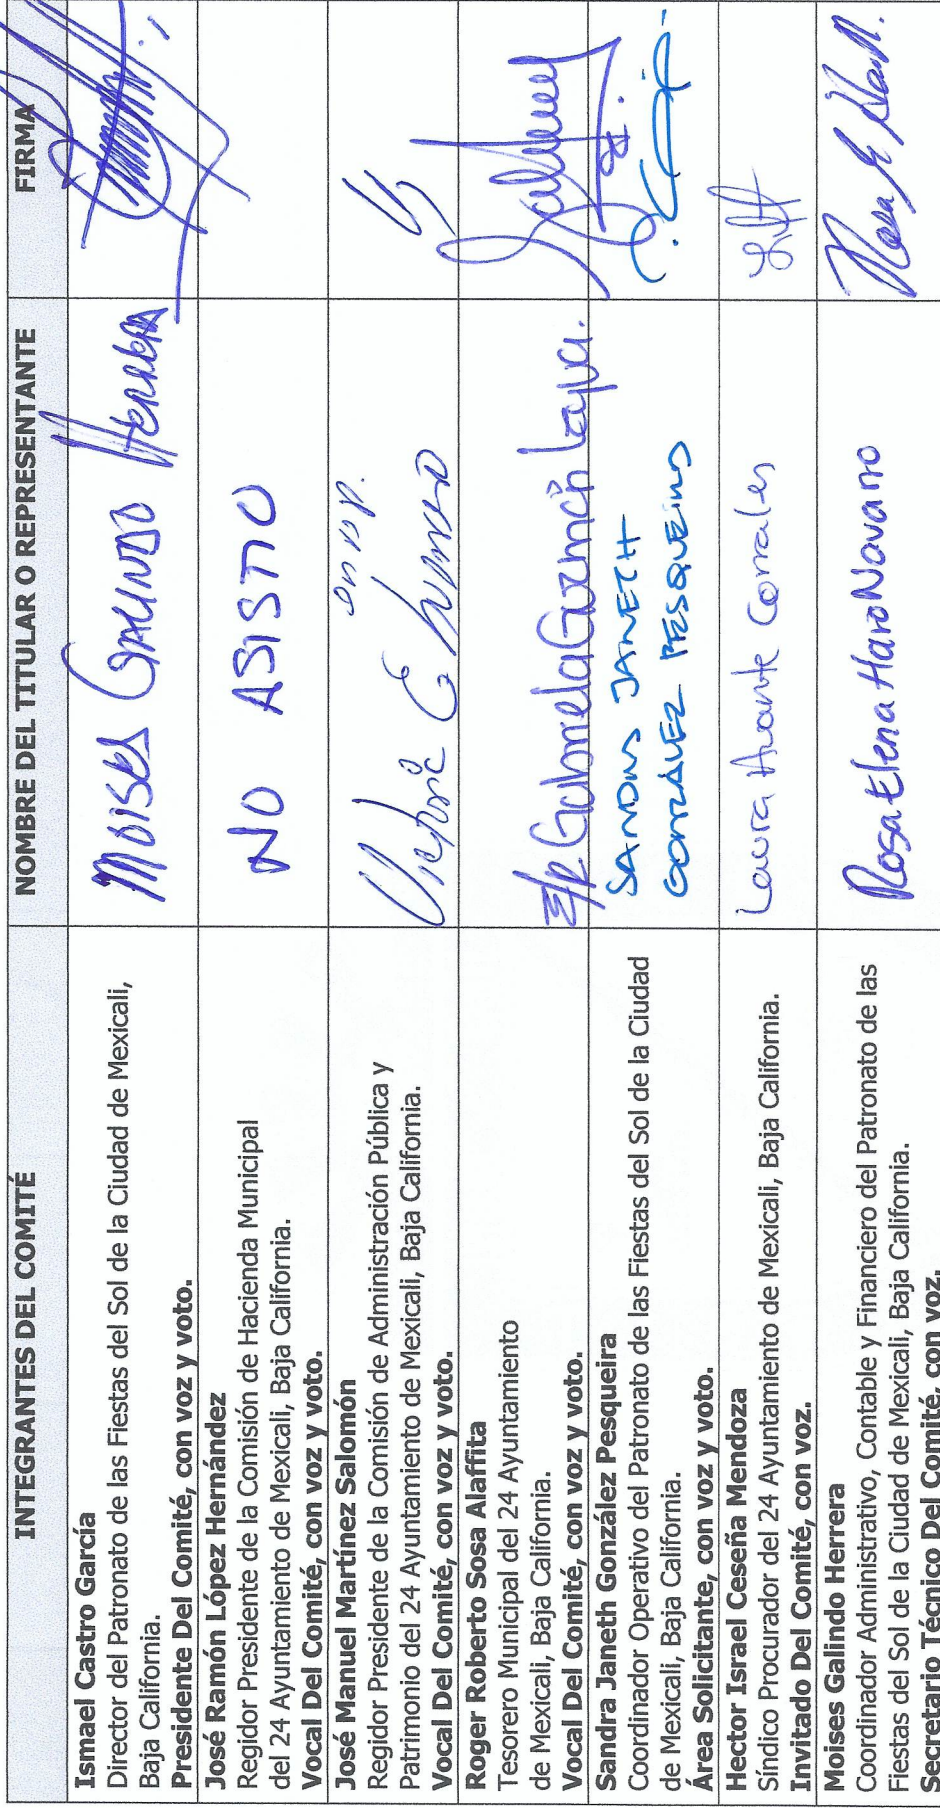 INTEGRANTES DEL COMITÉ
NOMBRE DEL TITULAR O REPRESENTANTE
FIRMA
Ismael Castro García
Director del Patronato de las Fiestas del Sol de la Ciudad de Mexicali,
Baja California.
Presidente Del Comité, con voz y voto.
MOISES GALINDO HERRERA
José Ramón López Hernández
Regidor Presidente de la Comisión de Hacienda Municipal
del 24 Ayuntamiento de Mexicali, Baja California.
Vocal Del Comité, con voz y voto.
NO ASISTIO
José Manuel Martínez Salomón
Regidor Presidente de la Comisión de Administración Pública y
Patrimonio del 24 Ayuntamiento de Mexicali, Baja California.
Vocal Del Comité, con voz y voto.
Roger Roberto Sosa Alaffita
Tesorero Municipal del 24 Ayuntamiento
de Mexicali, Baja California.
Vocal Del Comité, con voz y voto.
Gabriela Guzmán
Sandra Janeth González Pesqueira
Coordinador Operativo del Patronato de las Fiestas del Sol de la Ciudad
de Mexicali, Baja California.
Área Solicitante, con voz y voto.
SANDRA JANETH
GONZALEZ PESQUEIRA
Hector Israel Ceseña Mendoza
Síndico Procurador del 24 Ayuntamiento de Mexicali, Baja California.
Invitado Del Comité, con voz.
Laura Huante Corrales
Moises Galindo Herrera
Coordinador Administrativo, Contable y Financiero del Patronato de las
Fiestas del Sol de la Ciudad de Mexicali, Baja California.
Secretario Técnico Del Comité, con voz.
Rosa Elena Haro Navarro